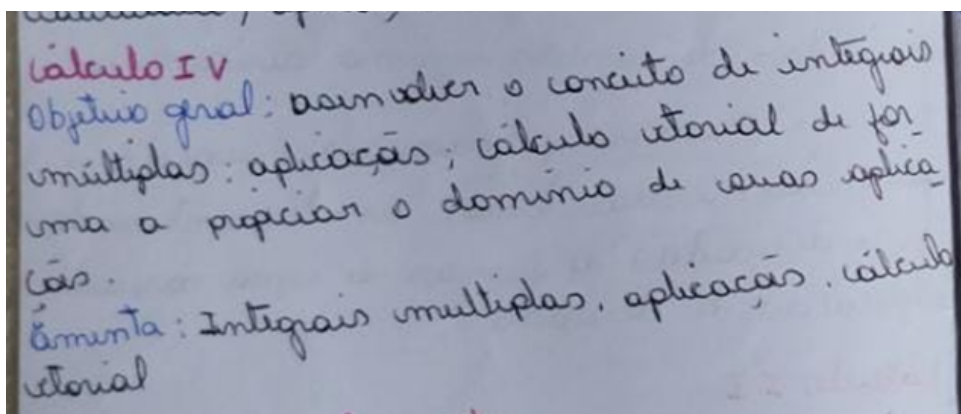 Cálculo IV
Objetivo geral: desenvolver o conceito de integrais
múltiplas: aplicação; cálculo vetorial de for
ma a propiciar o domínio de suas aplica
ções.
Ementa: Integrais multiplas, aplicação, cálculo
vetorial